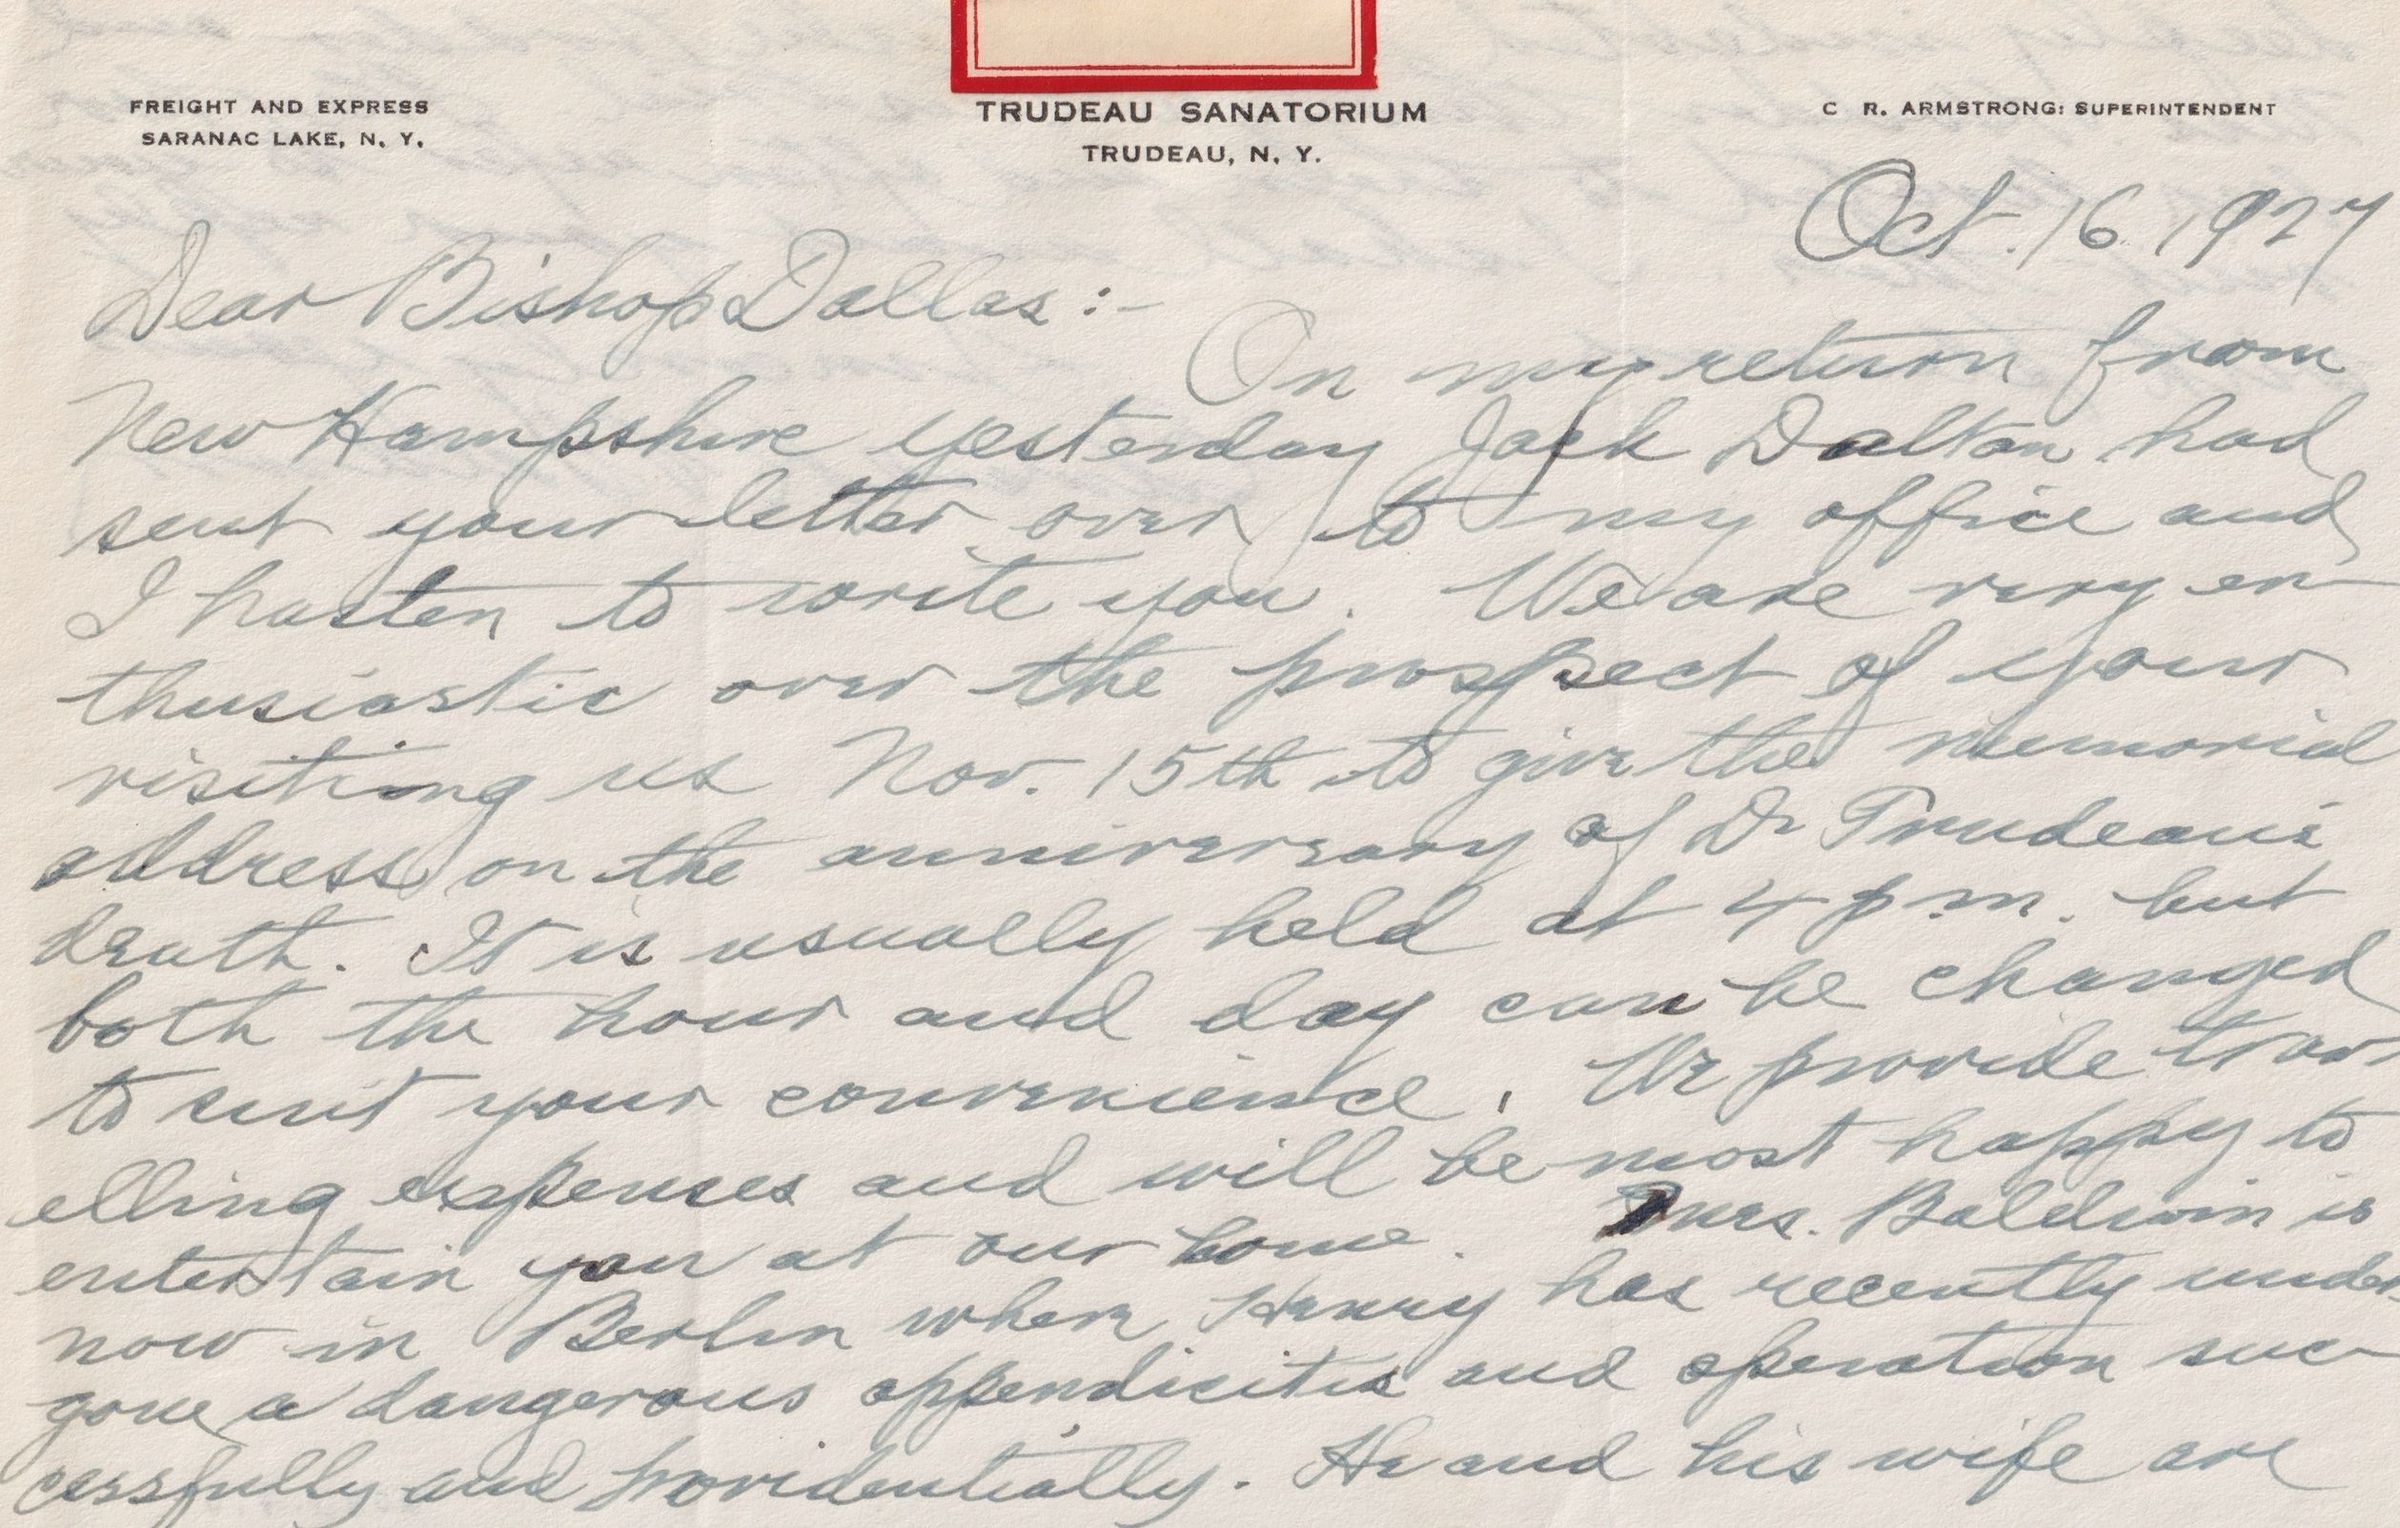 FREIGHT AND EXPRESS
SARANAC LAKE, N. Y.
TRUDEAU SANATORIUM
TRUDEAU, N. Y.
C R. ARMSTRONG: SUPERINTENDENT
Oct. 16, 1927
Dear Bishop Dallas:-
On my return from
New Hampshire yesterday Jack Dalton had
sent your letter over to my office and
I hasten to write you. We are very en-
thusiastic over the prospect of your
visiting us Nov. 15th to give the memorial
address on the anniversary of Dr Trudeau's
death. It is usually held at 4 p.m. but
both the hour and day can be changed
to suit your convenience. We provide trav-
elling expenses and will be most happy to
entertain you at our home. Mrs. Baldwin is
now in Berlin where Henry has recently under-
gone a dangerous appendicitis and operation suc-
cessfully and providentially. He and his wife are